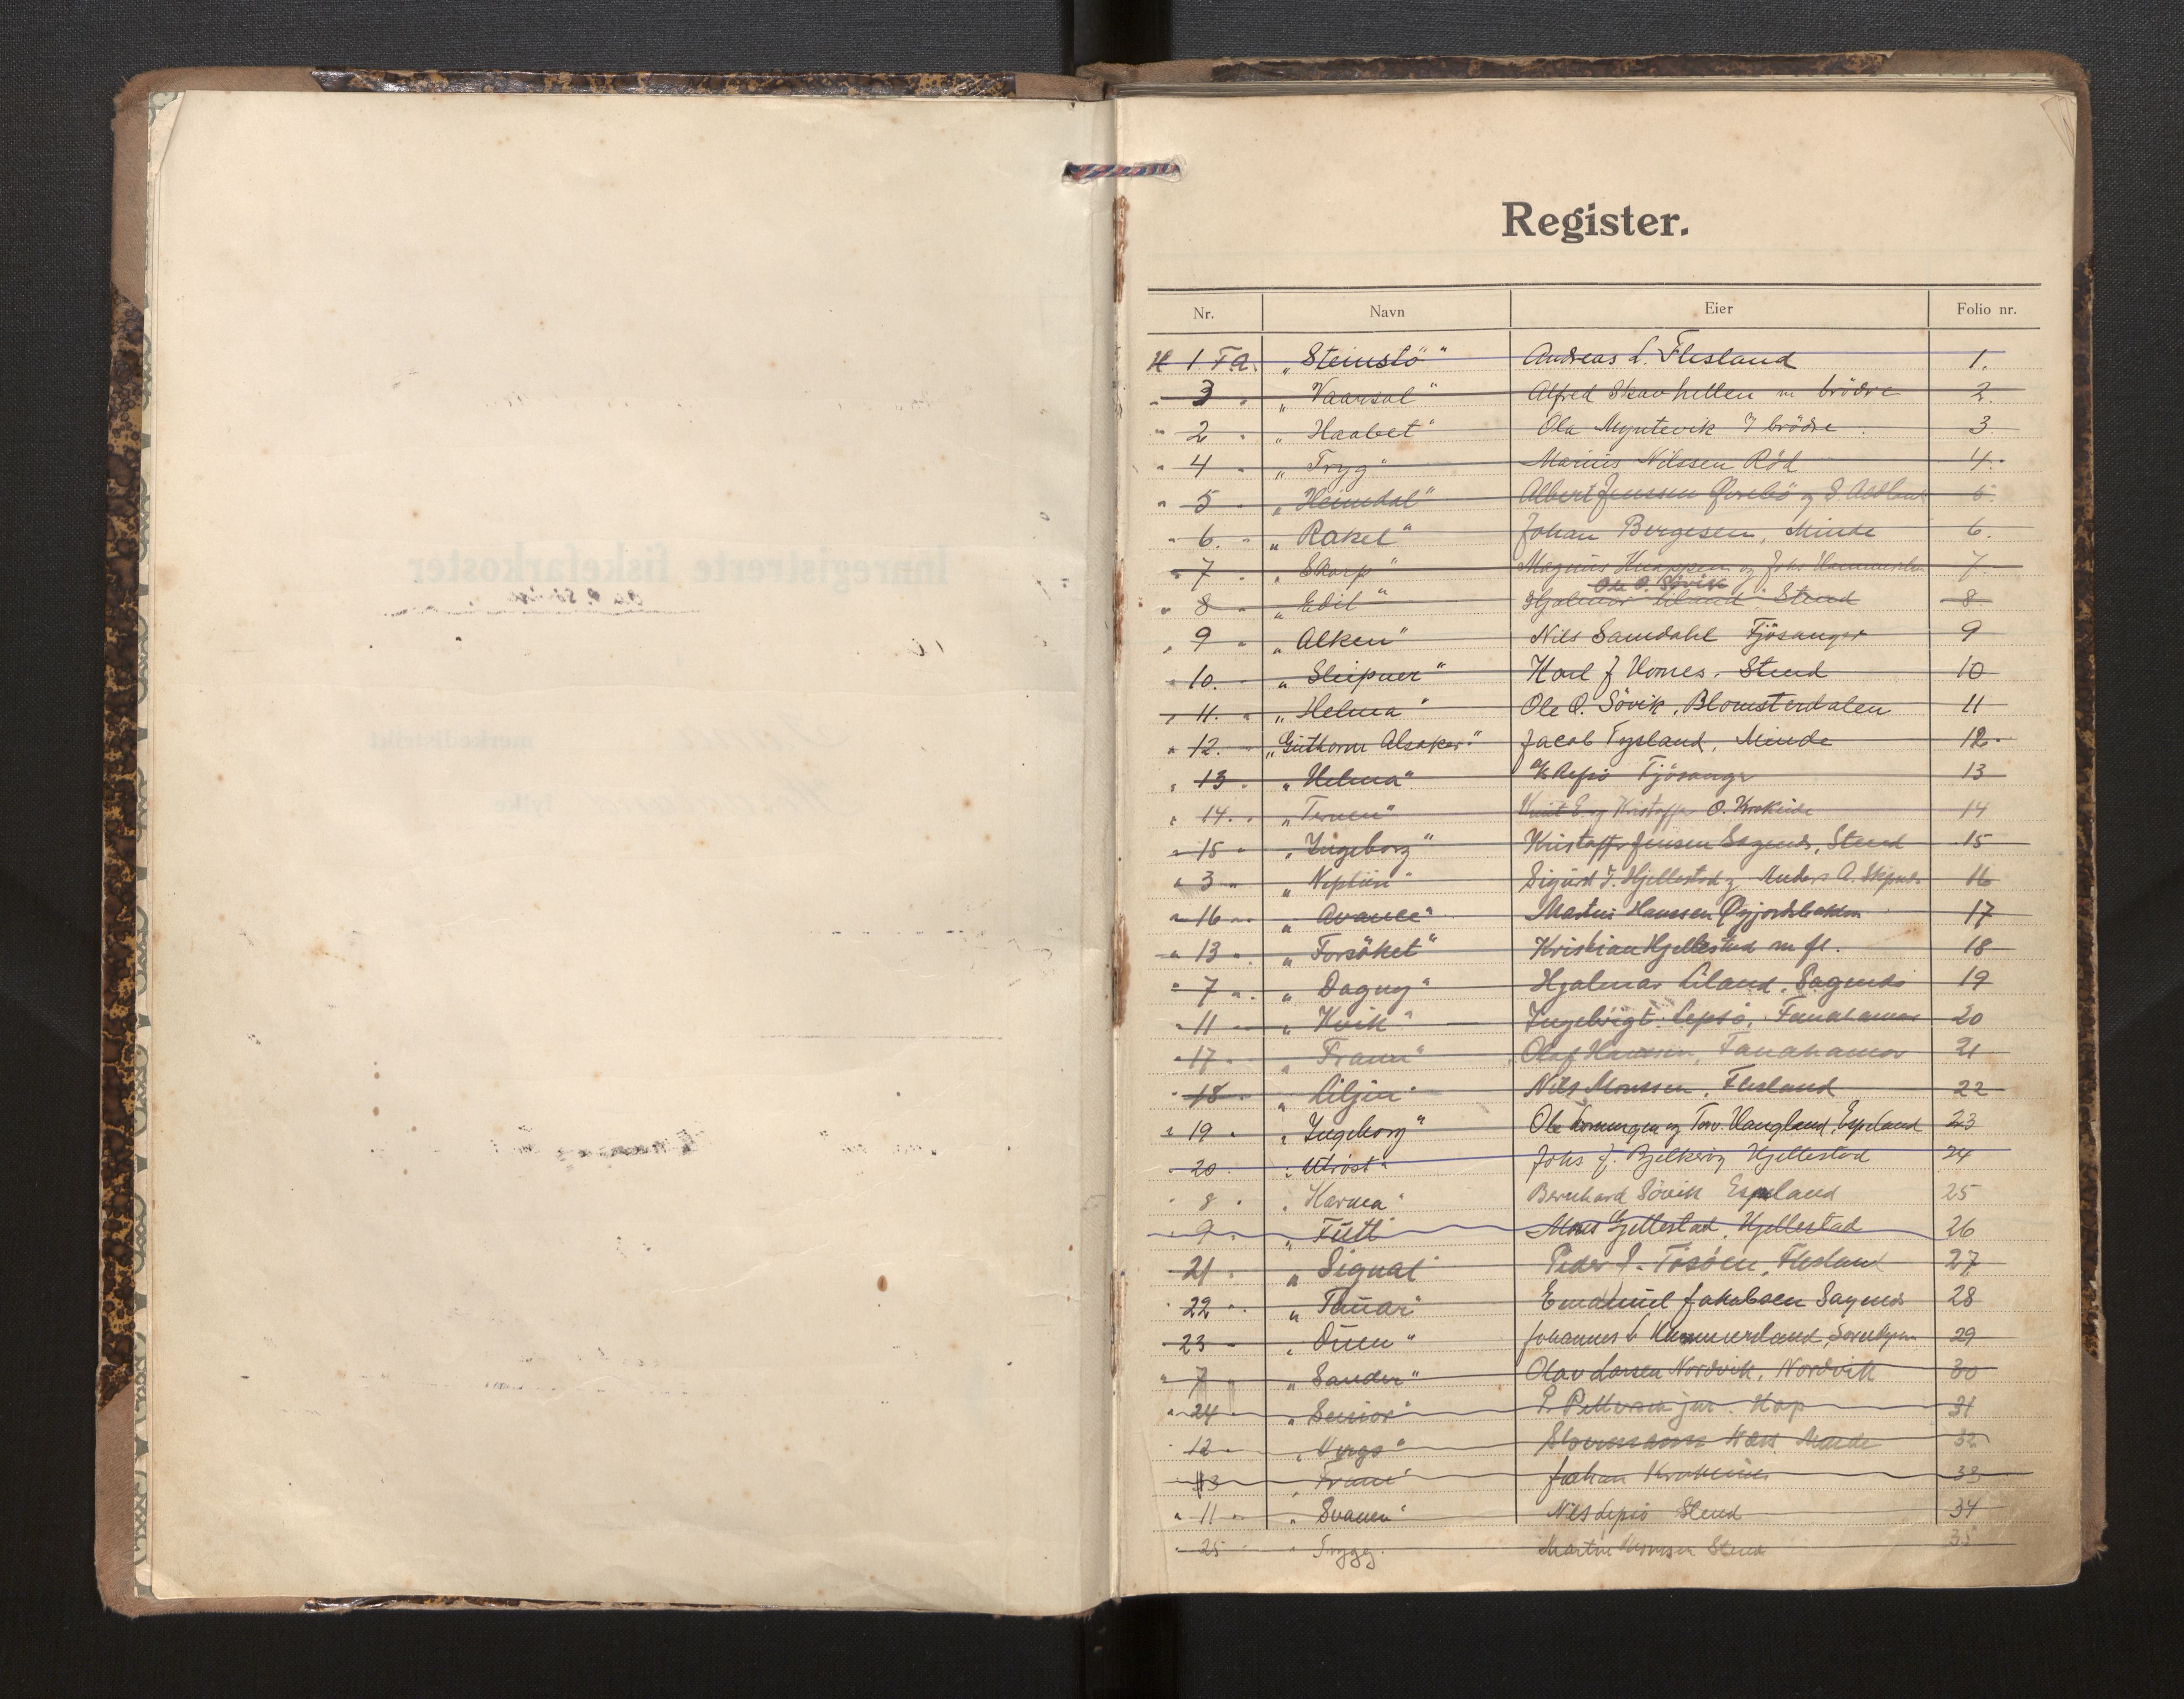 Register.
Nr. Navn Eier Folio nr.
H 1 Fa. "Steinsto" Andreas L. Flesland 1.
" 3 " "Vaarsol" Alfred Skavhellen m brödre 2.
" 2 " "Haabet" Ola Myntevik & brödre 3.
" 4 " "Tryg" Marius Nilssen Röd 4.
" 5 " "Heimdal" Albert Jenssen og S. 5.
" 6. " "Rakel" Johan Bergesen, Minde 6.
" 7 " "Skarp" Magnus Knappen og Johs 7.
Ole O. Søvik
" 8 " "Edil" Hjalmar Liland Stend 8
" 9 " "Alken" Nils Samdahl Fjösanger 9
" 10. " "Sleipner" Karl J Stend 10
" 11. " "Helma" Ole O. Sövik, Blomsterdalen 11
" 12. " "Guthorm Alsaker" Jacob Tysland, Minde 12.
" 13 " "Helma" Fjösanger 13
" 14. " "Ternen" Kristoffer O. Krokeide 14
" 15 " "Ingeborg" Kristoffer Jensen Sagends, Stend 15
" 3 " "Neptun" Sigurd T. Hjellestad Anders A. 16
" 16 " "Avance" Martin Hanssen 17
" 13 " "Forsöket" Kristian Hjellestad m fl. 18
" 7 " "Dagny" Hjalmar Liland, Sagends 19
" 11 " "Kvik" Ingebrigt Lepsö, Fanahamar 20
" 17 " "Fram" Olaf Hanssen, Fanahamar 21
" 18 " "Liljen" Nils Monssen, Flesland 22
" 19 " "Ingeborg" Ole og Torv. Haugland, Espeland 23
" 20 " "Utröst" Johs J. Bjelkeröy Hjellestad 24
" 8 " "Karma" Bernhard Sövik Espeland 25
" 9 " "Tutl" Mons Hjellestad, Hjellestad 26
" 21 " "Signal" Peder P. Flesland 27
" 22 " "Tanar" Emanuel Jakobsen Sagends 28
" 23 " "Duen" Johannes L Hammersland, 29
" 7 " "Sander" Olav Larsen Nordvik, Nordvik 30
" 24 " "Senior" P. Pettersen jur. Hop 31
" 12 " "Virgo" Minde 32
" 13 " "Fram" Johan Krokeide 33
" 11 " "Svanen" Nils Lepsö Stend 34
" 25 " "Trygg" Martin Monsen Stend 35